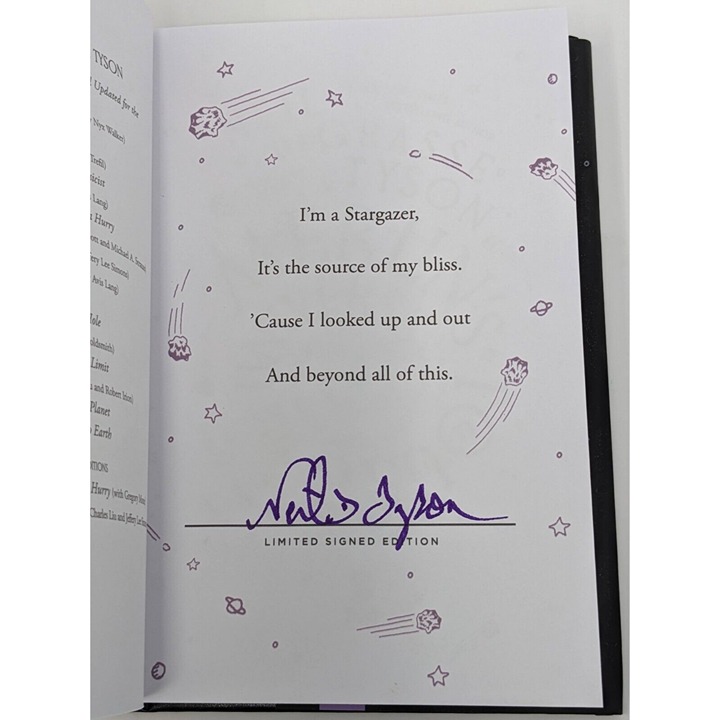 TYSON
Updated for the
Nyx Walker)
Trefil)
Lang)
Hurry
and Michael A. Strauss
Lee Simons)
Avis Lang)
Hole
Goldsmith)
Limit
and Robert Irion)
Planet
Earth
EDITIONS
Hurry (with Gregory Mone)
Charles Liu and Jeffrey Lee
I'm a Stargazer,
It's the source of my bliss.
'Cause I looked up and out
And beyond all of this.
Neil D Tyson
LIMITED SIGNED EDITION